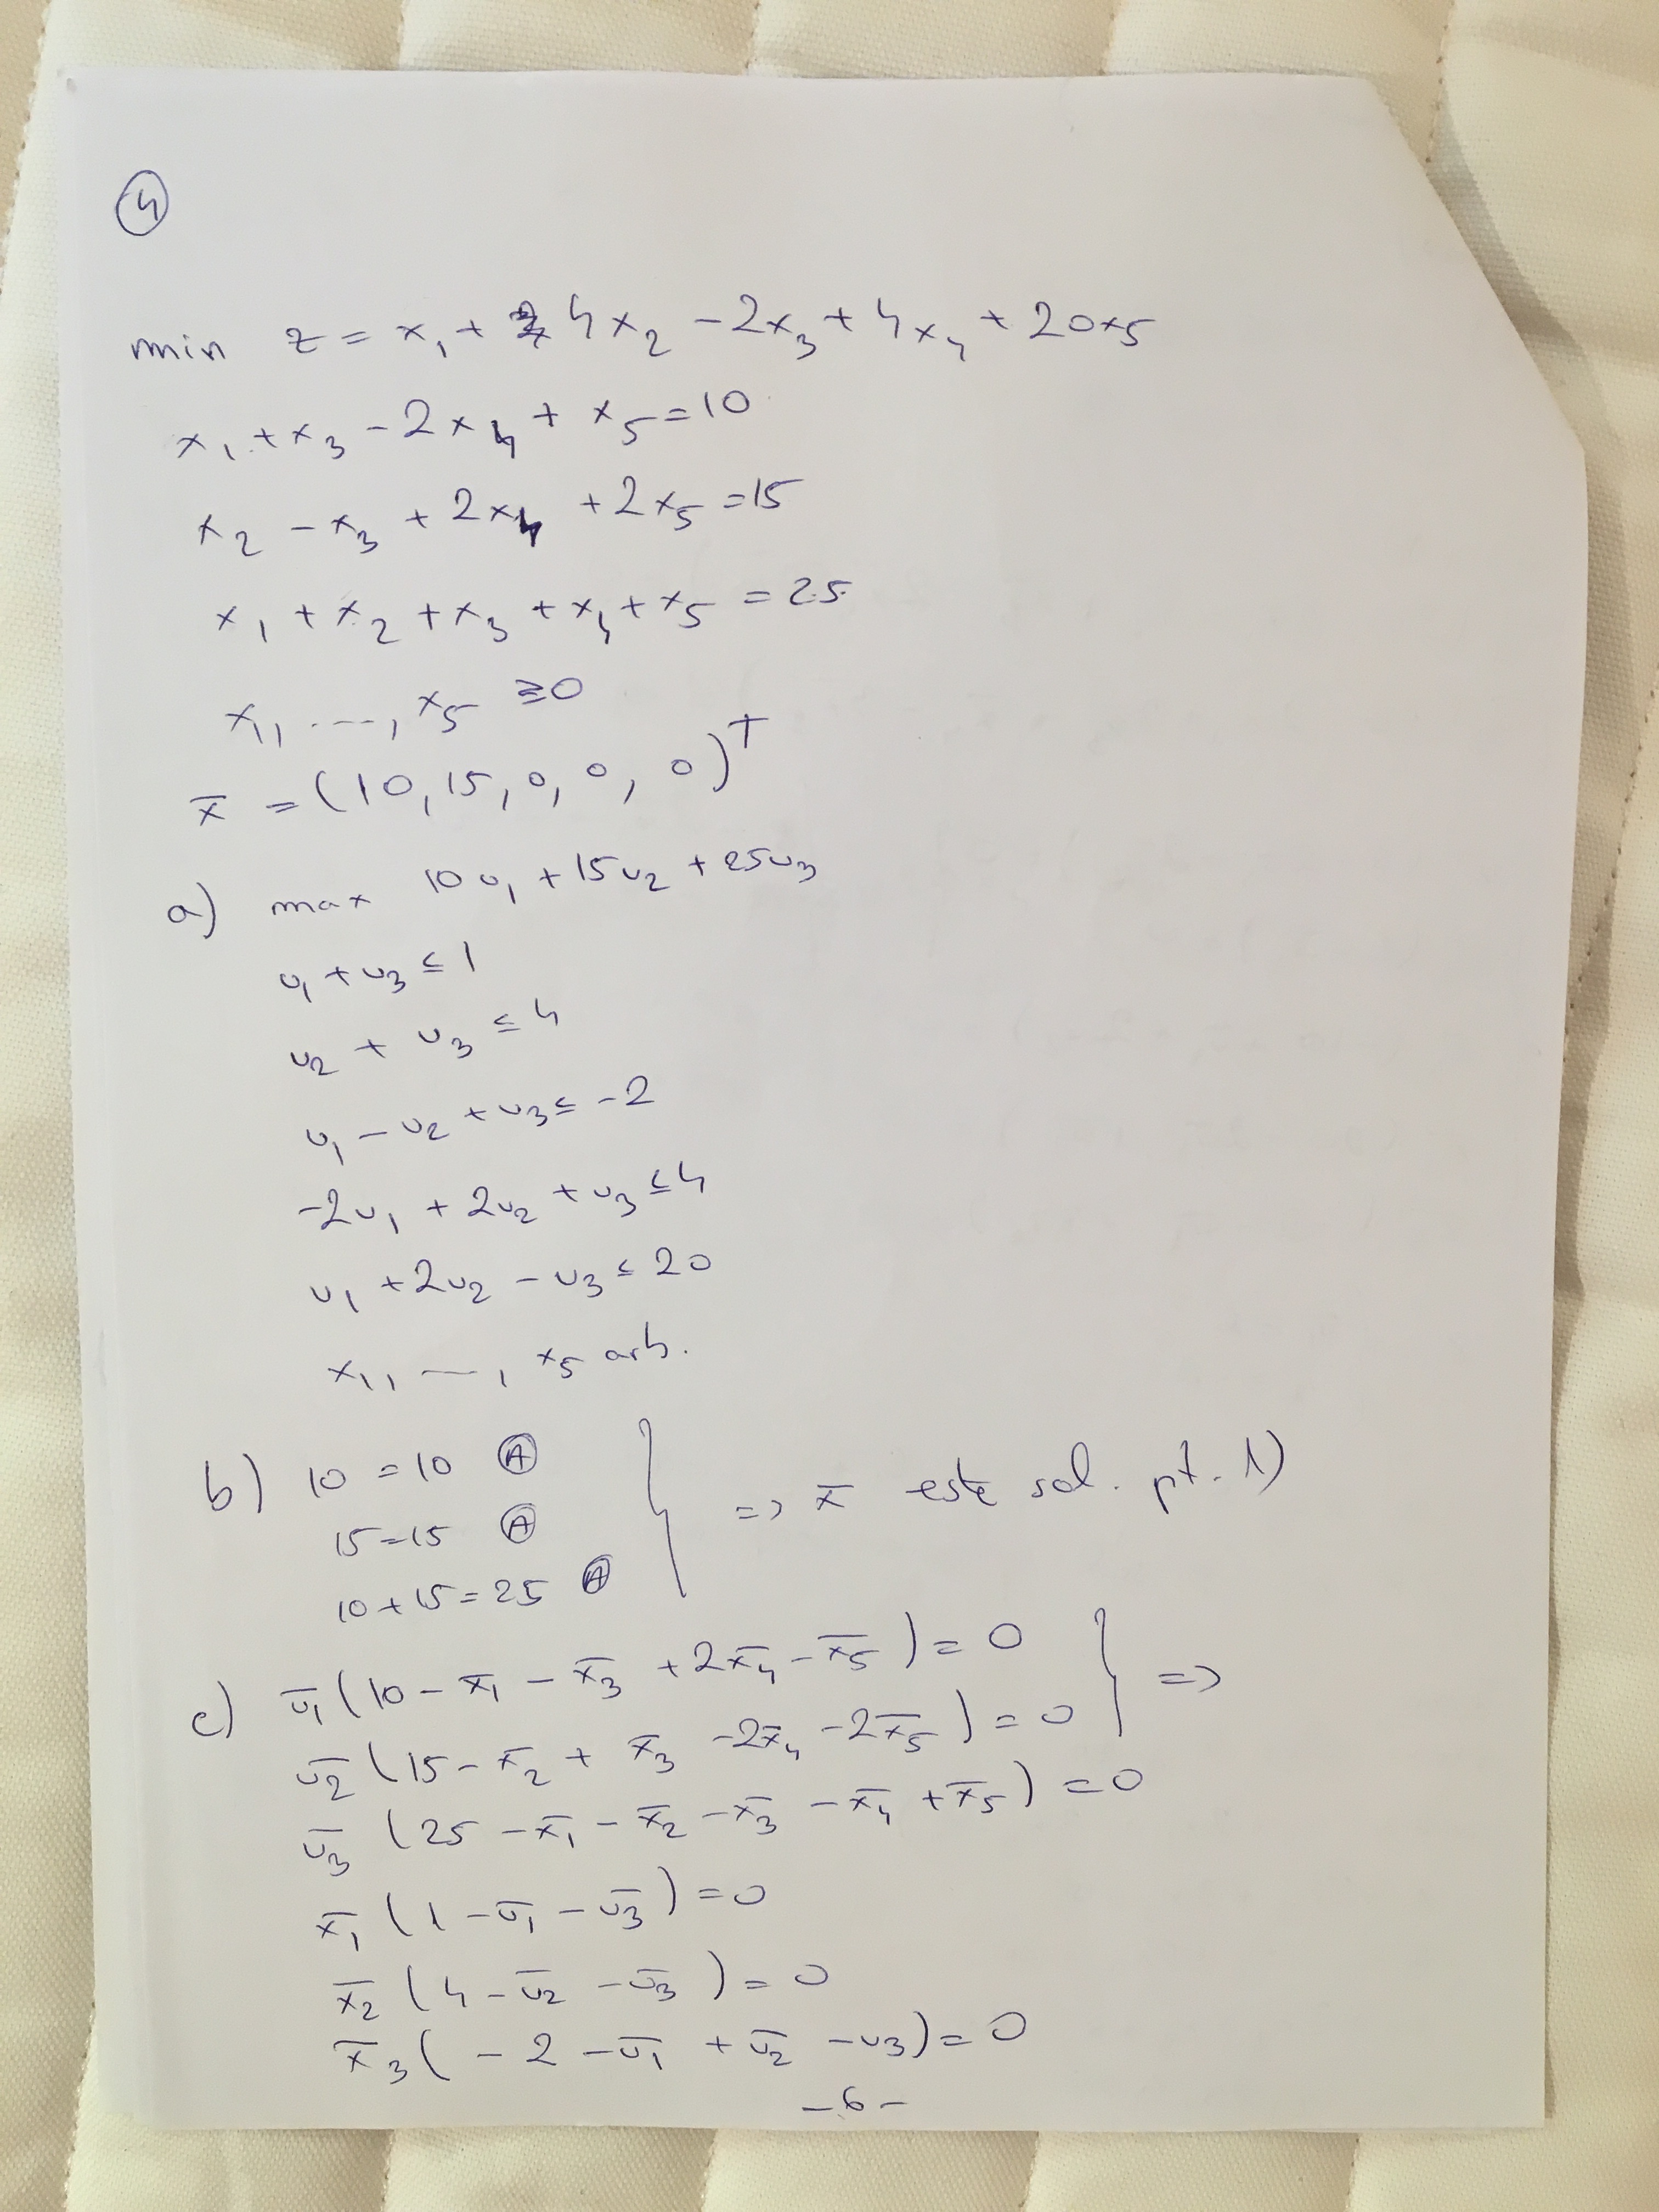 4
min z = x₁ + 4x₂ - 2x₃ + 4x₄ + 20x₅
x₁ + x₃ - 2x₄ + x₅ = 10
x₂ - x₃ + 2x₄ + 2x₅ = 15
x₁ + x₂ + x₃ + x₄ + x₅ = 25
x₁, ..., x₅ ≥ 0
x̅ = (10, 15, 0, 0, 0)ᵀ
a) max 10u₁ + 15u₂ + 25u₃
u₁ + u₃ ≤ 1
u₂ + u₃ ≤ 4
u₁ - u₂ + u₃ ≤ -2
-2u₁ + 2u₂ + u₃ ≤ 4
u₁ + 2u₂ - u₃ ≤ 20
x₁, ..., x₅ arb.
b) 10 = 10 Ⓐ
15 = 15 Ⓐ } => x̅ este sol. pt. 1)
10 + 15 = 25 Ⓐ
c) u̅₁ (10 - x̅₁ - x̅₃ + 2x̅₄ - x̅₅) = 0
u̅₂ (15 - x̅₂ + x̅₃ - 2x̅₄ - 2x̅₅) = 0 } =>
u̅₃ (25 - x̅₁ - x̅₂ - x̅₃ - x̅₄ + x̅₅) = 0
x̅₁ (1 - u̅₁ - u̅₃) = 0
x̅₂ (4 - u̅₂ - u̅₃) = 0
x̅₃ (-2 - u̅₁ + u̅₂ - u₃) = 0
-6-